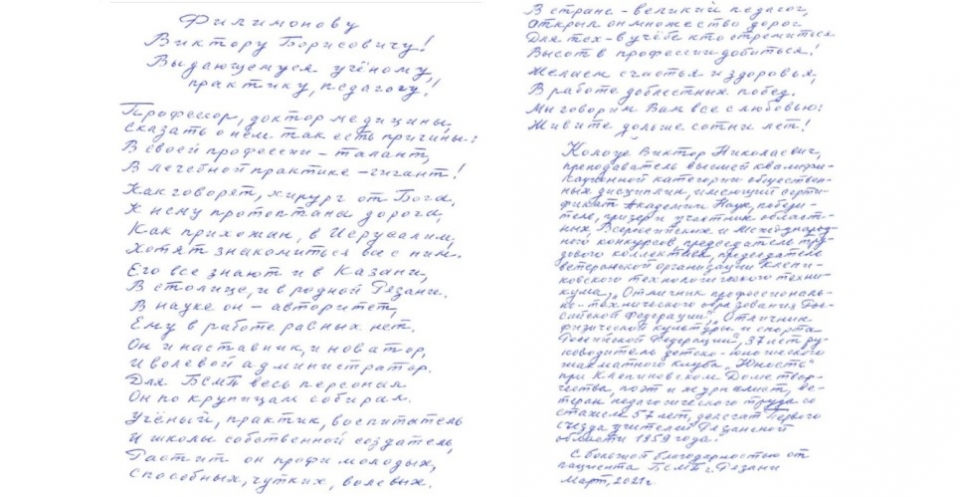 Филимонову
Виктору Борисовичу!
Выдающемуся учёному,
практику, педагогу!
Профессор, доктор медицины,
Сказать о нём так есть причины:
В своей профессии – талант,
В лечебной практике – гигант!
Как говорят, хирург от Бога,
К нему протоптана дорога,
Как прихожан, в Иерусалим,
Хотят знакомиться все с ним.
Его все знают и в Казани,
В столице, и в родной Рязани.
В науке он – авторитет,
Ему в работе равных нет.
Он и наставник, и новатор,
И волевой администратор.
Для БСМП весь персонал
Он по крупицам собирал.
Учёный, практик, воспитатель
И школы собственной создатель,
Растит он профи молодых,
Способных, чутких, волевых.
В стране – великий педагог,
Открыл он множество дорог
Для тех – в учёбе кто стремиться
Высот в профессии добиться!
Желаем счастья и здоровья,
В работе доблестных побед.
Мы говорим Вам все с любовью:
Живите дольше сотни лет!
Колоуе Виктор Николаевич,
преподаватель высшей квалифи-
кационной категории обществен-
ных дисциплин, имеющий серти-
фикат Академии Наук, победи-
тель, призер и участник област-
ных Всероссийских и Международ-
ного конкурсов, председатель тру-
дового коллектива, председатель
ветеранской организации Клепи-
ковского технологического техни-
кума, „Отличник профессиональ-
но-технического образования Рос-
сийской Федерации", „Отличник
физической культуры и спорта
Российской Федерации", 37 лет ру-
ководитель детско-юношеского
шахматного клуба „Юность"
при Клепиковском Доме творче-
чества, поэт и журналист, ве-
теран педагогического труда со
стажем 57 лет, делегат Первого
съезда учителей Рязанской
области 1959 года.
С большой благодарностью от
пациента БСМП г. Рязани
Март, 2021г